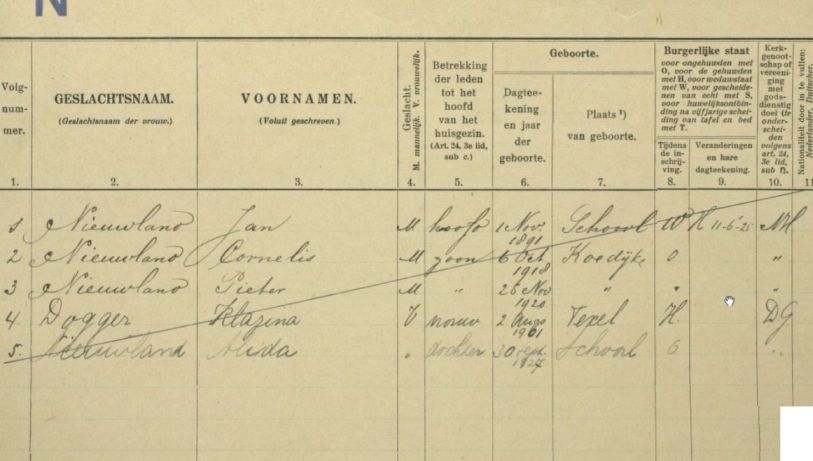 N
Volg-
num-
mer.
GESLACHTSNAAM.
(Geslachtsnaam der vrouw.)
VOORNAMEN.
(Voluit geschreven.)
Geslacht.
M. mannelijk. V. vrouwelijk.
Betrekking
der leden
tot het
hoofd
van het
huisgezin.
(Art. 24, 3e lid,
sub c.)
Geboorte.
Dagtee-
kening
en jaar
der
geboorte.
Plaats ¹)
van geboorte.
Burgerlijke staat
voor ongehuwden met
O, voor de gehuwden
met H, voor weduwstaat
met W, voor gescheide-
nen van echt met S,
voor huwelijksontbin-
ding na vijfjarige schei-
ding van tafel en bed
met T.
Tijdens
de in-
schrij-
ving.
Veranderingen
en hare
dagteekening.
Kerk-
genoot-
schap of
vereeni-
ging
met
gods-
dienstig
doel (te
onder-
schei-
den
volgens
art. 24,
3e lid,
sub f).
Nationaliteit door in te vullen:
Nederlander, Duitscher,
1. 2. 3. 4. 5. 6. 7. 8. 9. 10. 11
1 Nieuwland Jan M hoofd 1 Nov. 1891 Schoorl W H 11-6-25 NH
2 Nieuwland Cornelis M zoon 6 Oct 1918 Koedijk O "
3 Nieuwland Pieter M " 26 Nov 1920 " " "
4 Dogger Klazina V vrouw 2 Augs 1901 Texel H. DG
5. Nieuwland Alida " dochter 30 sept. 1927 Schoorl O "